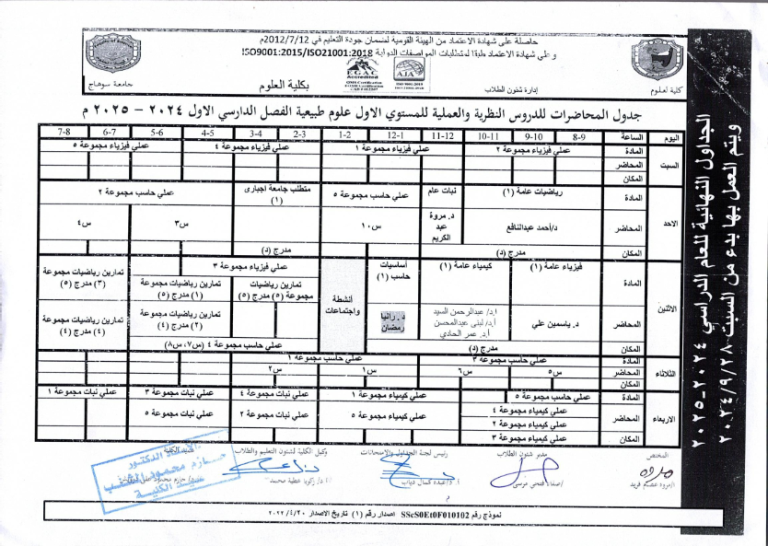 حاصلة على شهادة الاعتماد من الهيئة القومية لضمان جودة التعليم في 2012/7/12م
وعلى شهادة الاعتماد طبقا لمتطلبات المواصفات الدولية ISO9001:2015/ISO21001:2018
كلية العلوم
إدارة شئون الطلاب
EGAC
AIA
بكلية العلوم
جامعة سوهاج
جدول المحاضرات للدروس النظرية والعملية للمستوي الاول علوم طبيعية الفصل الدارسي الاول ٢٠٢٤ – ٢٠٢٥ م
الجداول النهائية للعام الدراسي ٢٠٢٤-٢٠٢٥
ويتم العمل بها بدء من السبت ٢٠٢٤/٩/٢٨
اليوم الساعة 8-9 9-10 10-11 11-12 12-1 1-2 2-3 3-4 4-5 5-6 6-7 7-8
السبت
المادة عملي فيزياء مجموعة ٢ عملي فيزياء مجموعة ١ عملي فيزياء مجموعة ٤ عملي فيزياء مجموعة ٥
المحاضر
المكان
الاحد
المادة رياضيات عامة (١) نبات عام عملي حاسب مجموعة ٥ متطلب جامعة اجبارى (١) عملي حاسب مجموعة ٢
المحاضر د/أحمد عبدالنافع د. مروة عبد الكريم س١٠ س٣ س٤
المكان مدرج (د) مدرج (د)
الاثنين
المادة فيزياء عامة (١) كيمياء عامة (١) أساسيات حاسب (١) أنشطة واجتماعات عملي فيزياء مجموعة ٣
تمارين رياضيات مجموعة ٥ (مدرج ٥)
تمارين رياضيات مجموعة (١) مدرج (٥)
تمارين رياضيات مجموعة (٣) مدرج (٥)
المحاضر د. ياسمين علي
أ.د/ عبدالرحمن السيد
أ.د/ لبنى عبدالمحسن
أ.د. عمر الحادي
د. رانيا رمضان
تمارين رياضيات مجموعة (٢) مدرج (٤)
تمارين رياضيات مجموعة (٤) مدرج (٤)
المكان مدرج (د) عملي حاسب مجموعة ٤ (س٧، س٨)
الثلاثاء
المادة عملي حاسب مجموعة ٣ عملي حاسب مجموعة ١
المحاضر س٥ س٦ س١ س٢
المكان
الاربعاء
المادة عملي حاسب مجموعة ٥ عملي كيمياء مجموعة ١ عملي نبات مجموعة ٤ عملي نبات مجموعة ٣ عملي نبات مجموعة ١
المحاضر عملي كيمياء مجموعة ٤
عملي كيمياء مجموعة ٢ عملي كيمياء مجموعة ٥ عملي نبات مجموعة ٢ عملي نبات مجموعة ٥
المكان عملي كيمياء مجموعة ٣
المختص
مدير شئون الطلاب
رئيس لجنة الجداول والامتحانات
وكيل الكلية لشئون التعليم والطلاب
عميد الكلية
الدكتور
حازم محمود
عميد الكلية
نموذج رقم SScS0Et0F010102 اصدار رقم (١) تاريخ الاصدار ٢٠٢٢/٤/٢٠